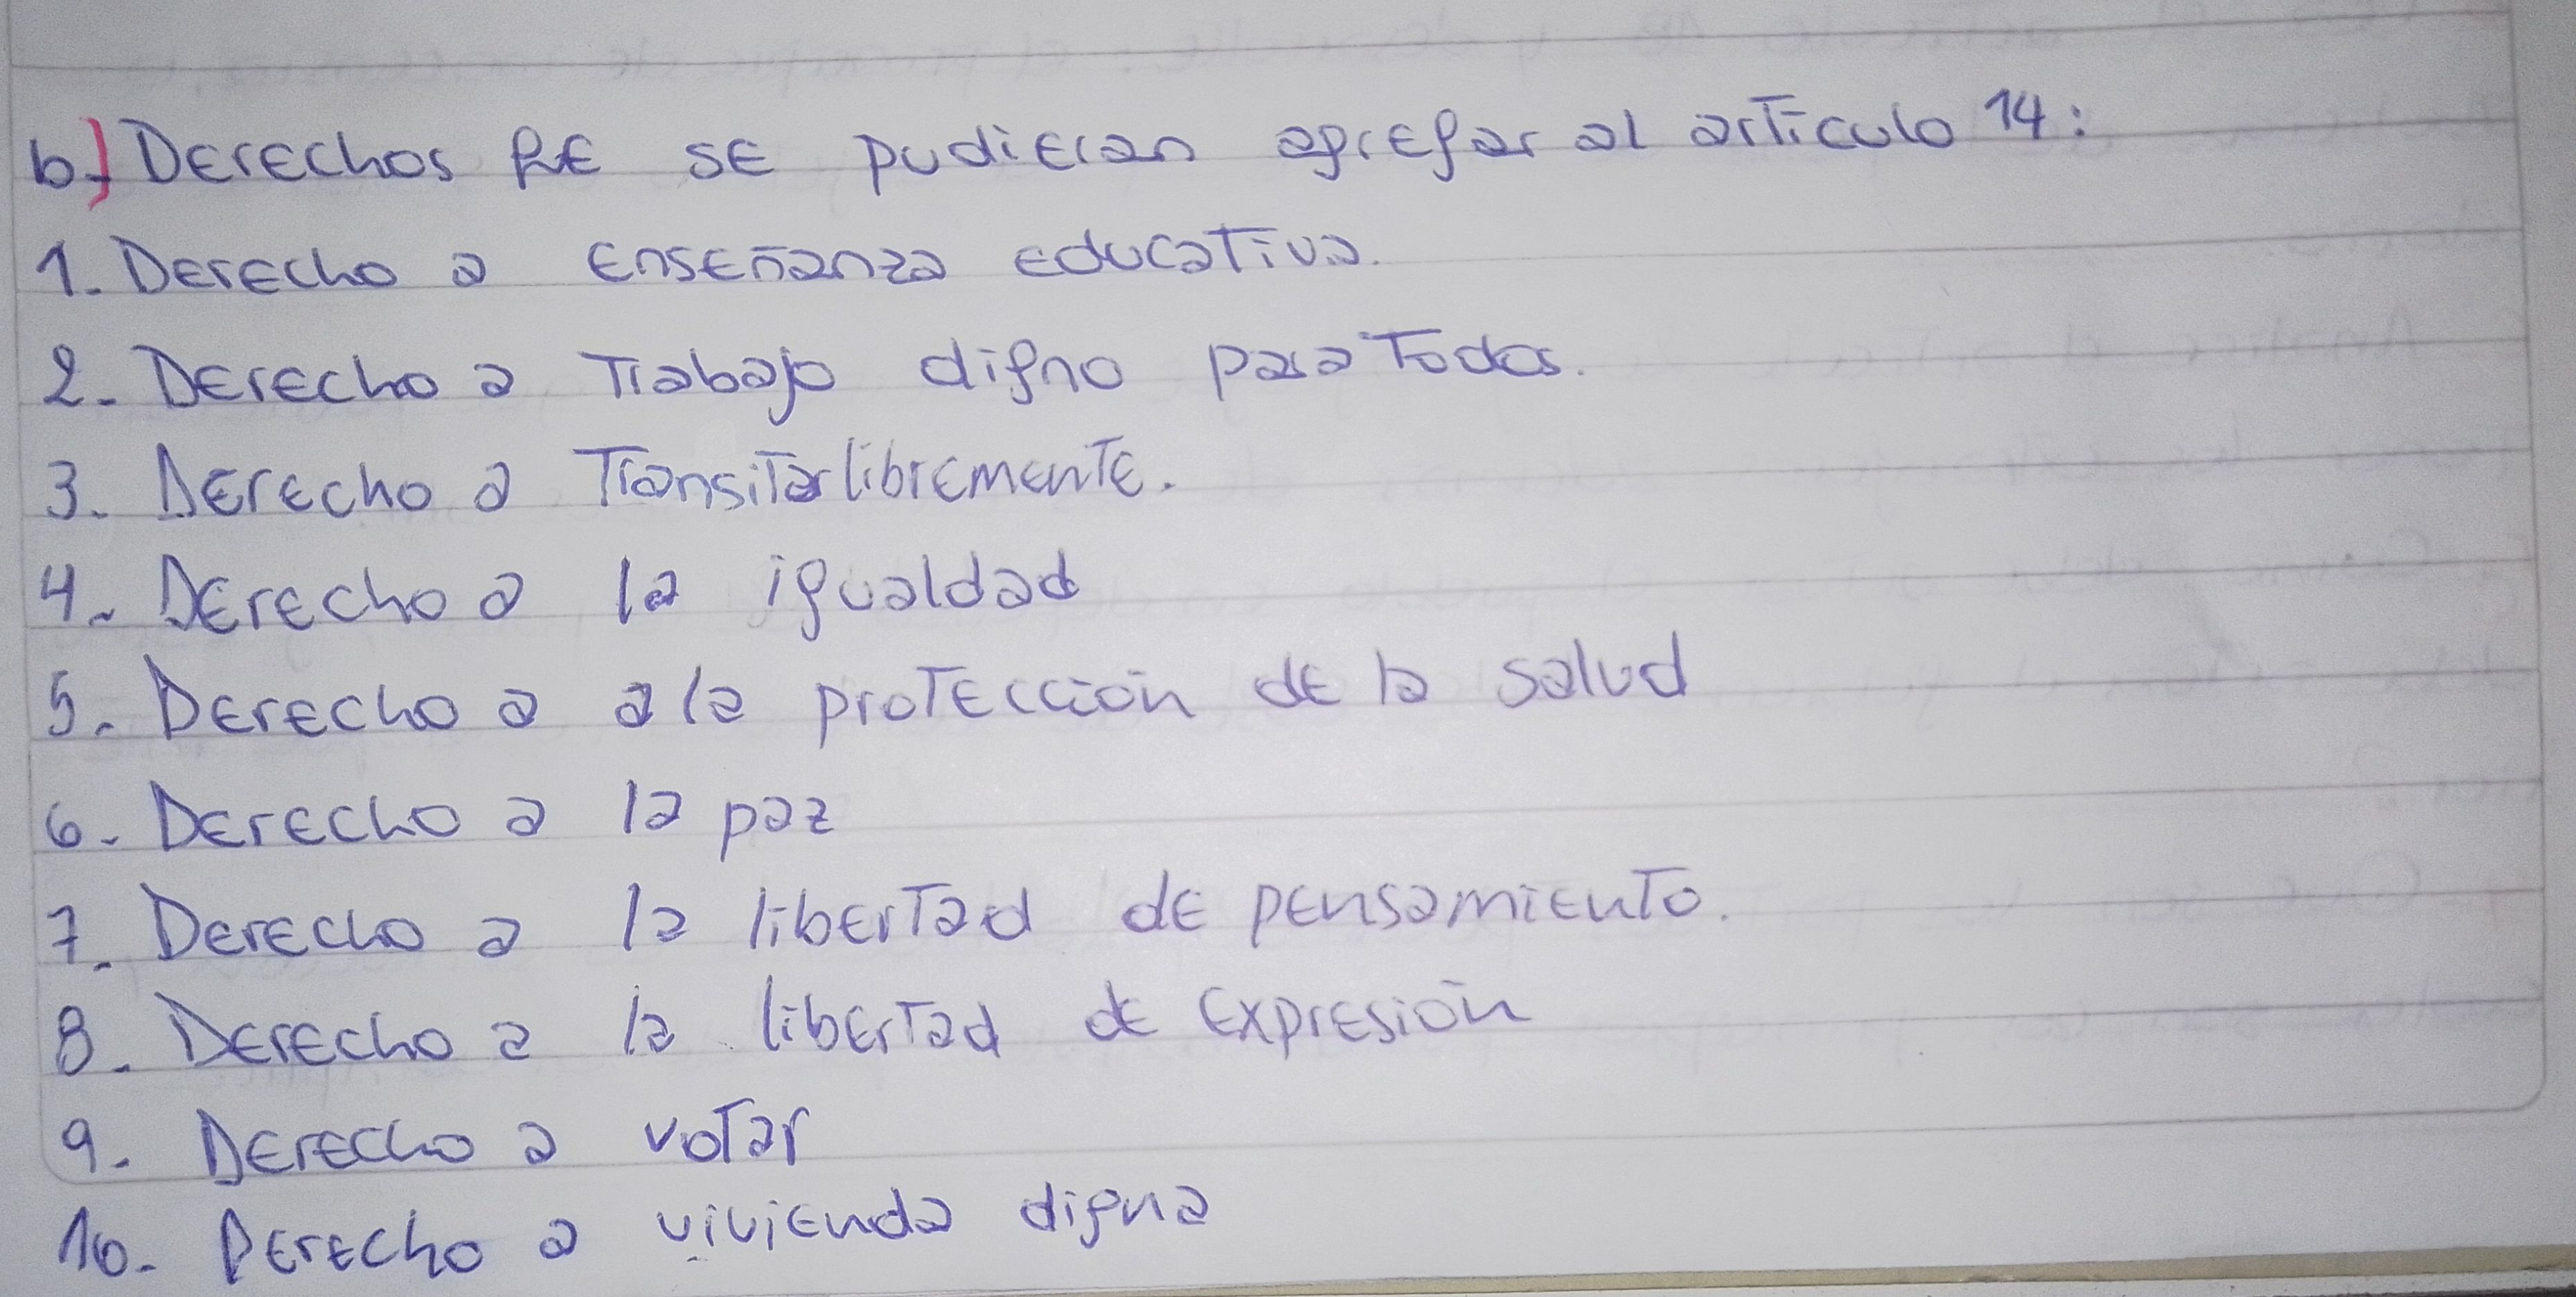 b) Derechos qe se pudieran agregar al artículo 14:
1. Derecho a enseñanza educativa.
2. Derecho a Trabajo digno para Todos.
3. Derecho a Transitar libremente.
4. Derecho a la igualdad
5. Derecho a a la protección de la salud
6. Derecho a la paz
7. Derecho a la libertad de pensamiento.
8. Derecho a la libertad de expresión
9. Derecho a votar
10. Derecho a vivienda digna